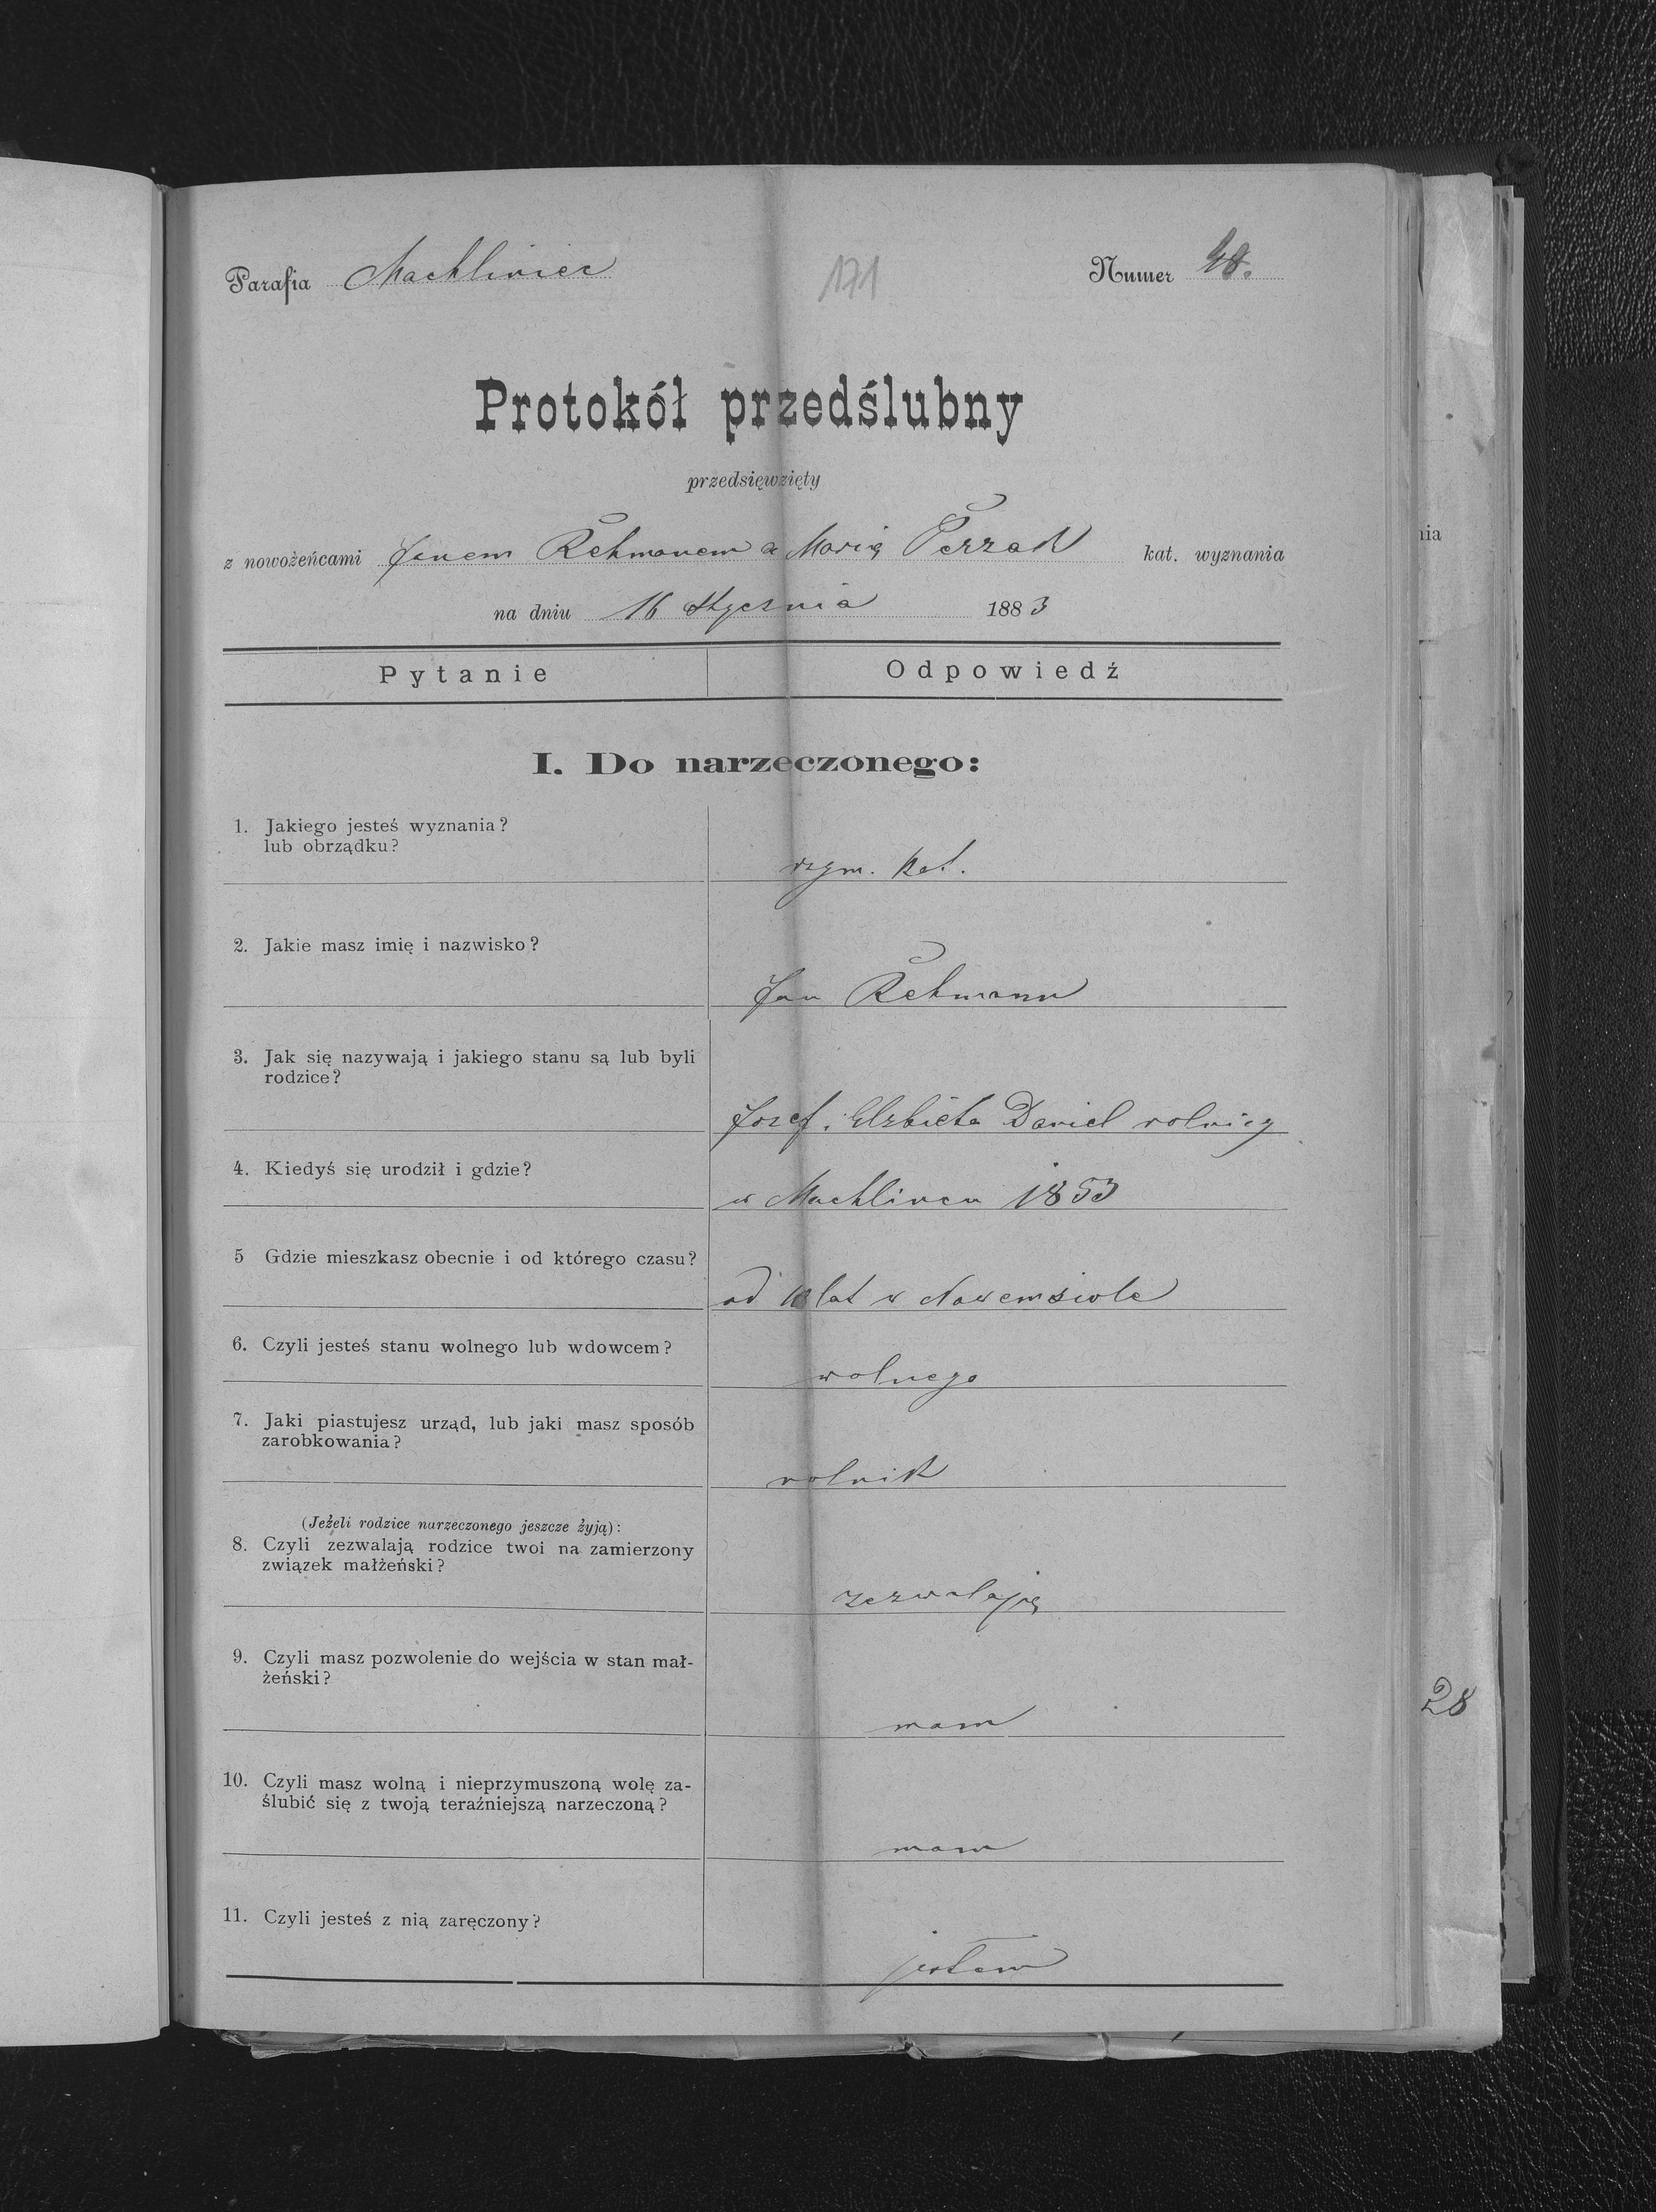 Parafia Machliniec 171 Numer 48.
Protokół przedślubny
przedsięwzięty
z nowożeńcami Janem Rehmanem a Marią Perzak kat. wyznania
na dniu 16 Stycznia 1883
Pytanie Odpowiedź
I. Do narzeczonego:
1. Jakiego jesteś wyznania?
lub obrządku?
rzym. kat.
2. Jakie masz imię i nazwisko?
Jan Rehmann
3. Jak się nazywają i jakiego stanu są lub byli
rodzice?
Jozef. Elzbieta Daniel rolnicy
4. Kiedyś się urodził i gdzie?
w Machlincu 1853
5 Gdzie mieszkasz obecnie i od którego czasu?
od lat w Nowemsiole
6. Czyli jesteś stanu wolnego lub wdowcem?
wolnego
7. Jaki piastujesz urząd, lub jaki masz sposób
zarobkowania?
rolnik
(Jeżeli rodzice narzeczonego jeszcze żyją):
8. Czyli zezwalają rodzice twoi na zamierzony
związek małżeński?
zezwalają
9. Czyli masz pozwolenie do wejścia w stan mał-
żeński?
mam
10. Czyli masz wolną i nieprzymuszoną wolę za-
ślubić się z twoją teraźniejszą narzeczoną?
mam
11. Czyli jesteś z nią zaręczony?
jestem
nia
28